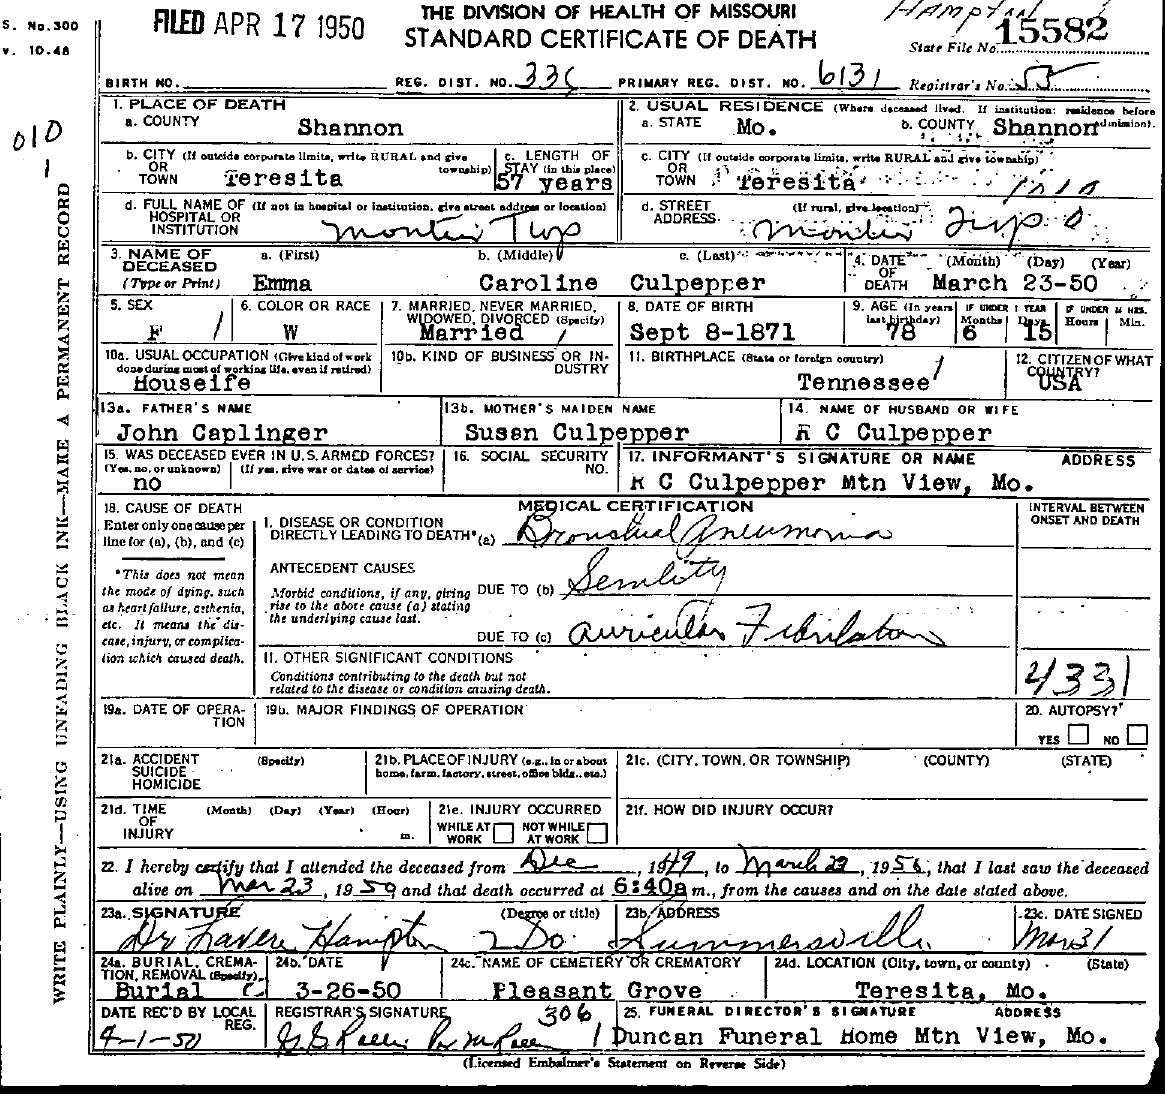 S. No.300
v. 10.48
FILED APR 17 1950
THE DIVISION OF HEALTH OF MISSOURI
STANDARD CERTIFICATE OF DEATH
Hampton
State File No. 15582
BIRTH NO. REG. DIST. NO. 335 PRIMARY REG. DIST. NO. 6131 Registrar's No.
010
1
WRITE PLAINLY—USING UNFADING BLACK INK—MAKE A PERMANENT RECORD
1. PLACE OF DEATH
a. COUNTY Shannon
2. USUAL RESIDENCE (Where deceased lived. If institution: residence before admission).
a. STATE Mo. b. COUNTY Shannon
b. CITY (If outside corporate limits, write RURAL and give township) OR TOWN Teresita
c. LENGTH OF STAY (in this place) 57 years
c. CITY (If outside corporate limits, write RURAL and give township) OR TOWN Teresita
d. FULL NAME OF (If not in hospital or institution, give street address or location) HOSPITAL OR INSTITUTION Montier Twp
d. STREET ADDRESS (If rural, give location) Montier Twp
3. NAME OF DECEASED (Type or Print)
a. (First) Emma
b. (Middle) Caroline
c. (Last) Culpepper
4. DATE OF DEATH (Month) (Day) (Year) March 23-50
5. SEX F
6. COLOR OR RACE W
7. MARRIED, NEVER MARRIED, WIDOWED, DIVORCED (Specify) Married
8. DATE OF BIRTH Sept 8-1871
9. AGE (In years last birthday) 78
IF UNDER 1 YEAR Months 6 Days 15
IF UNDER 24 HRS. Hours Min.
10a. USUAL OCCUPATION (Give kind of work done during most of working life, even if retired) Houseife
10b. KIND OF BUSINESS OR INDUSTRY
11. BIRTHPLACE (State or foreign country) Tennessee
12. CITIZEN OF WHAT COUNTRY? USA
13a. FATHER'S NAME John Caplinger
13b. MOTHER'S MAIDEN NAME Susan Culpepper
14. NAME OF HUSBAND OR WIFE R C Culpepper
15. WAS DECEASED EVER IN U.S. ARMED FORCES? (Yes, no, or unknown) (If yes, give war or dates of service) no
16. SOCIAL SECURITY NO.
17. INFORMANT'S SIGNATURE OR NAME ADDRESS
R C Culpepper Mtn View, Mo.
18. CAUSE OF DEATH
Enter only one cause per line for (a), (b), and (c)
*This does not mean the mode of dying, such as heart failure, asthenia, etc. It means the disease, injury, or complication which caused death.
MEDICAL CERTIFICATION
INTERVAL BETWEEN ONSET AND DEATH
I. DISEASE OR CONDITION DIRECTLY LEADING TO DEATH* (a) Bronchial Pneumonia
ANTECEDENT CAUSES
Morbid conditions, if any, giving rise to the above cause (a) stating the underlying cause last.
DUE TO (b) Senility
DUE TO (c) Auricular Fibrilation
II. OTHER SIGNIFICANT CONDITIONS
Conditions contributing to the death but not related to the disease or condition causing death.
4331
19a. DATE OF OPERATION
19b. MAJOR FINDINGS OF OPERATION
20. AUTOPSY?
YES NO
21a. ACCIDENT SUICIDE HOMICIDE (Specify)
21b. PLACE OF INJURY (e.g., in or about home, farm, factory, street, office bldg., etc.)
21c. (CITY, TOWN, OR TOWNSHIP) (COUNTY) (STATE)
21d. TIME OF INJURY (Month) (Day) (Year) (Hour) m.
21e. INJURY OCCURRED
WHILE AT WORK NOT WHILE AT WORK
21f. HOW DID INJURY OCCUR?
22. I hereby certify that I attended the deceased from Dec, 1949, to March 23, 1950, that I last saw the deceased
alive on Mar 23, 1950 and that death occurred at 6:40a m., from the causes and on the date stated above.
23a. SIGNATURE (Degree or title) Dr Hampton DO
23b. ADDRESS Summersville
23c. DATE SIGNED Mar 31
24a. BURIAL, CREMATION, REMOVAL (Specify) Burial
24b. DATE 3-26-50
24c. NAME OF CEMETERY OR CREMATORY Pleasant Grove
24d. LOCATION (City, town, or county) (State) Teresita, Mo.
DATE REC'D BY LOCAL REG. 4-1-50
REGISTRAR'S SIGNATURE 306
25. FUNERAL DIRECTOR'S SIGNATURE ADDRESS
Duncan Funeral Home Mtn View, Mo.
(Licensed Embalmer's Statement on Reverse Side)